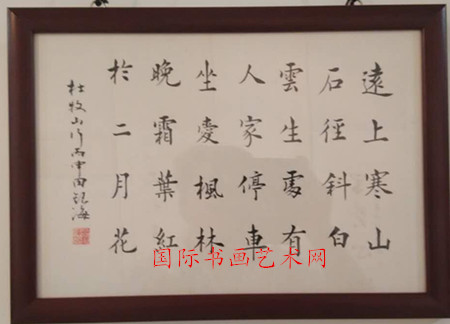 遠上寒山
石徑斜白
雲生處有
人家停車
坐愛楓林
晚霜葉紅
於二月花
杜牧山行丙申田海
国际书画艺术网